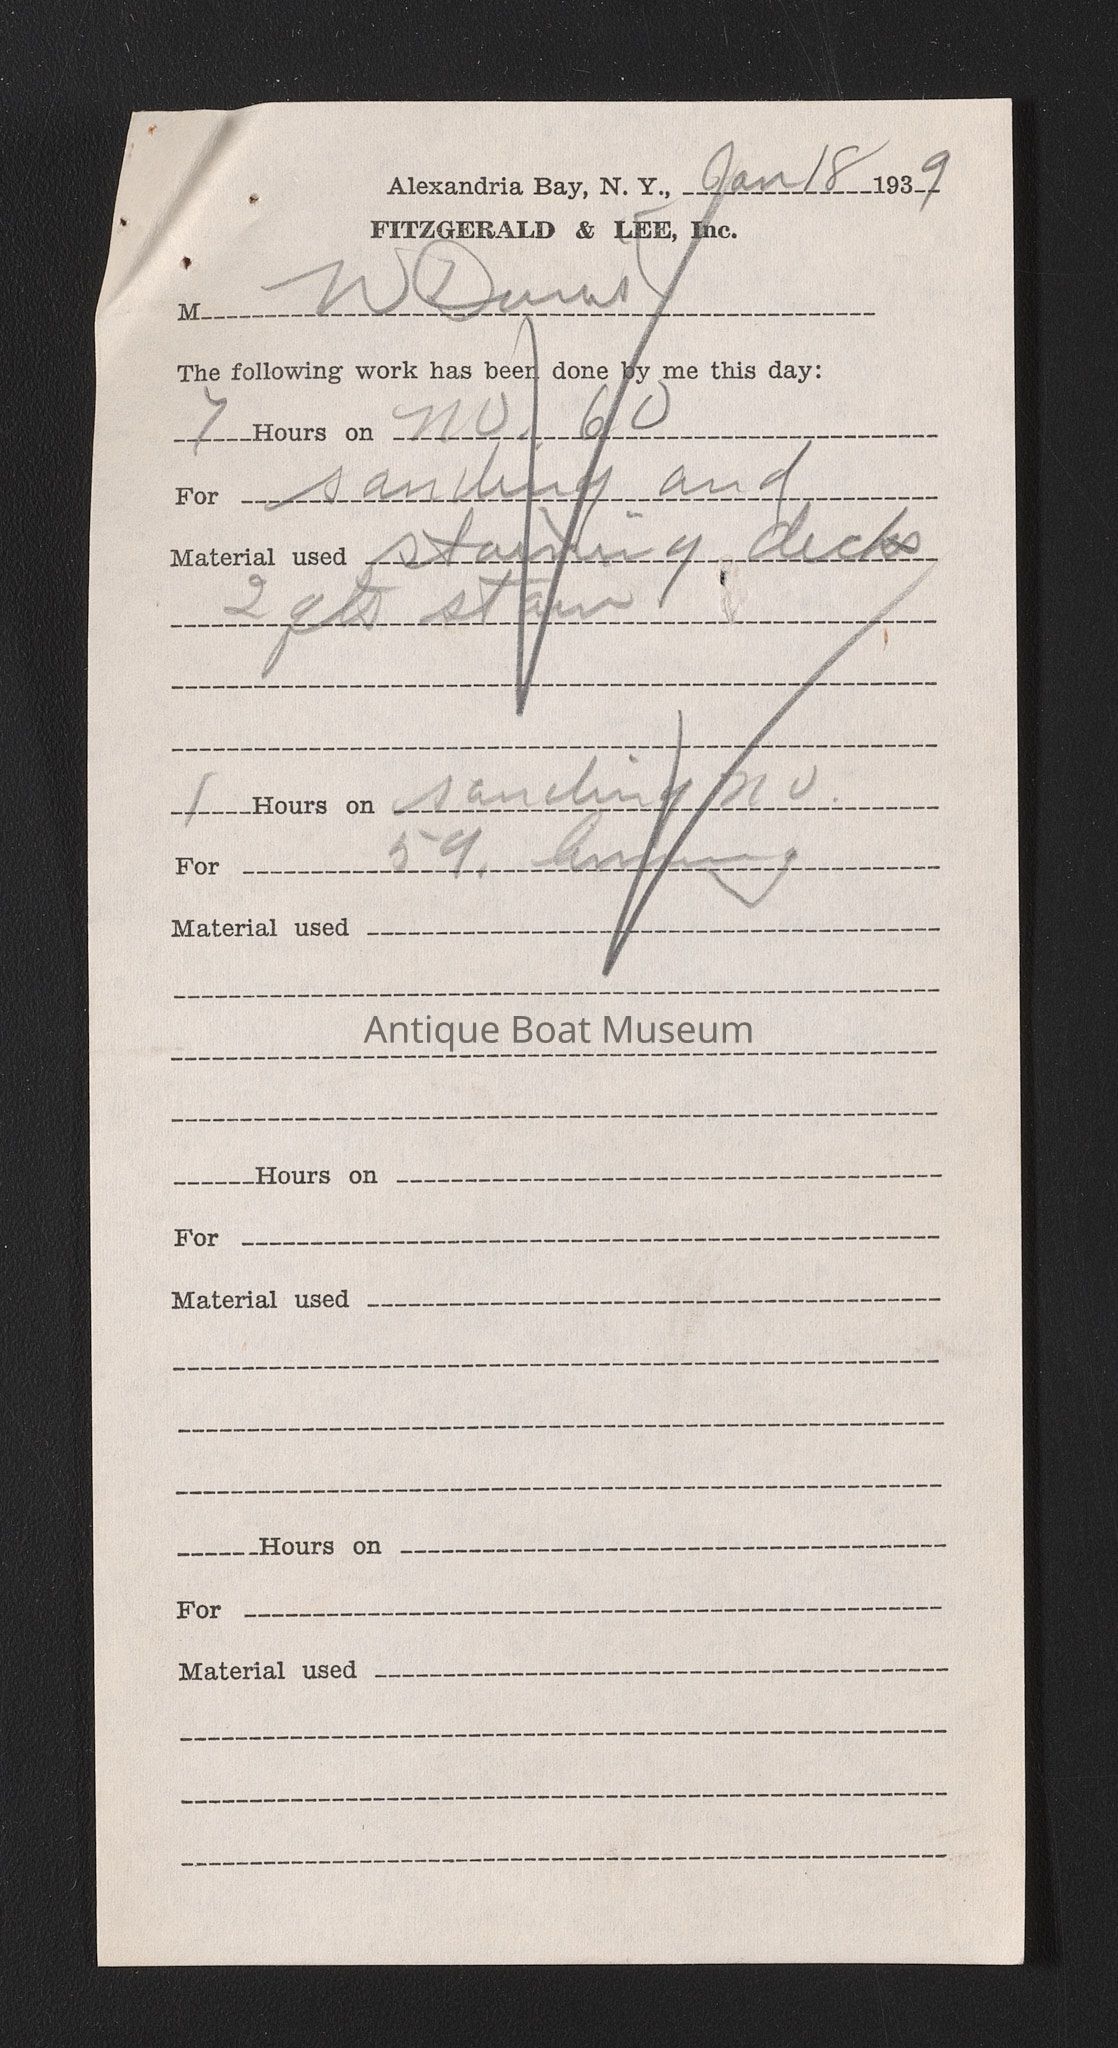 Alexandria Bay, N. Y., Jan 18 1939
FITZGERALD & LEE, Inc.
M W Davis
The following work has been done by me this day:
7 Hours on no. 60
For sanding and
Material used staining decks
2 qts stain
1 Hours on sanding no.
For 59.
Material used
Antique Boat Museum
Hours on
For
Material used
Hours on
For
Material used